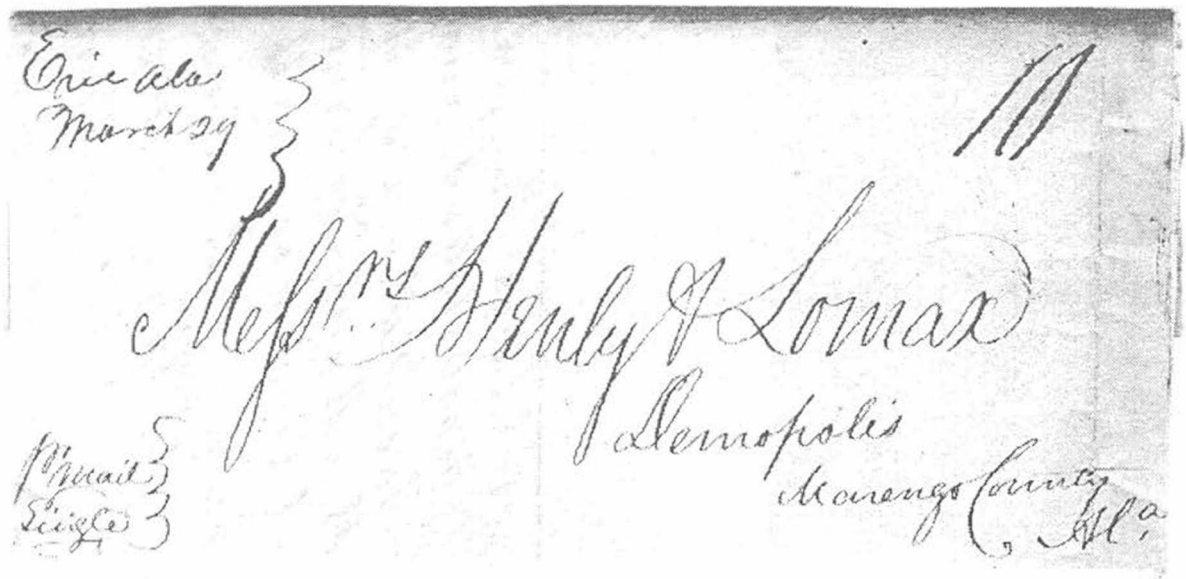 Erie Ala
March 29
10
Messrs. Henly & Lomax
Demopolis
Marengo County
Ala.
pr mail
Single